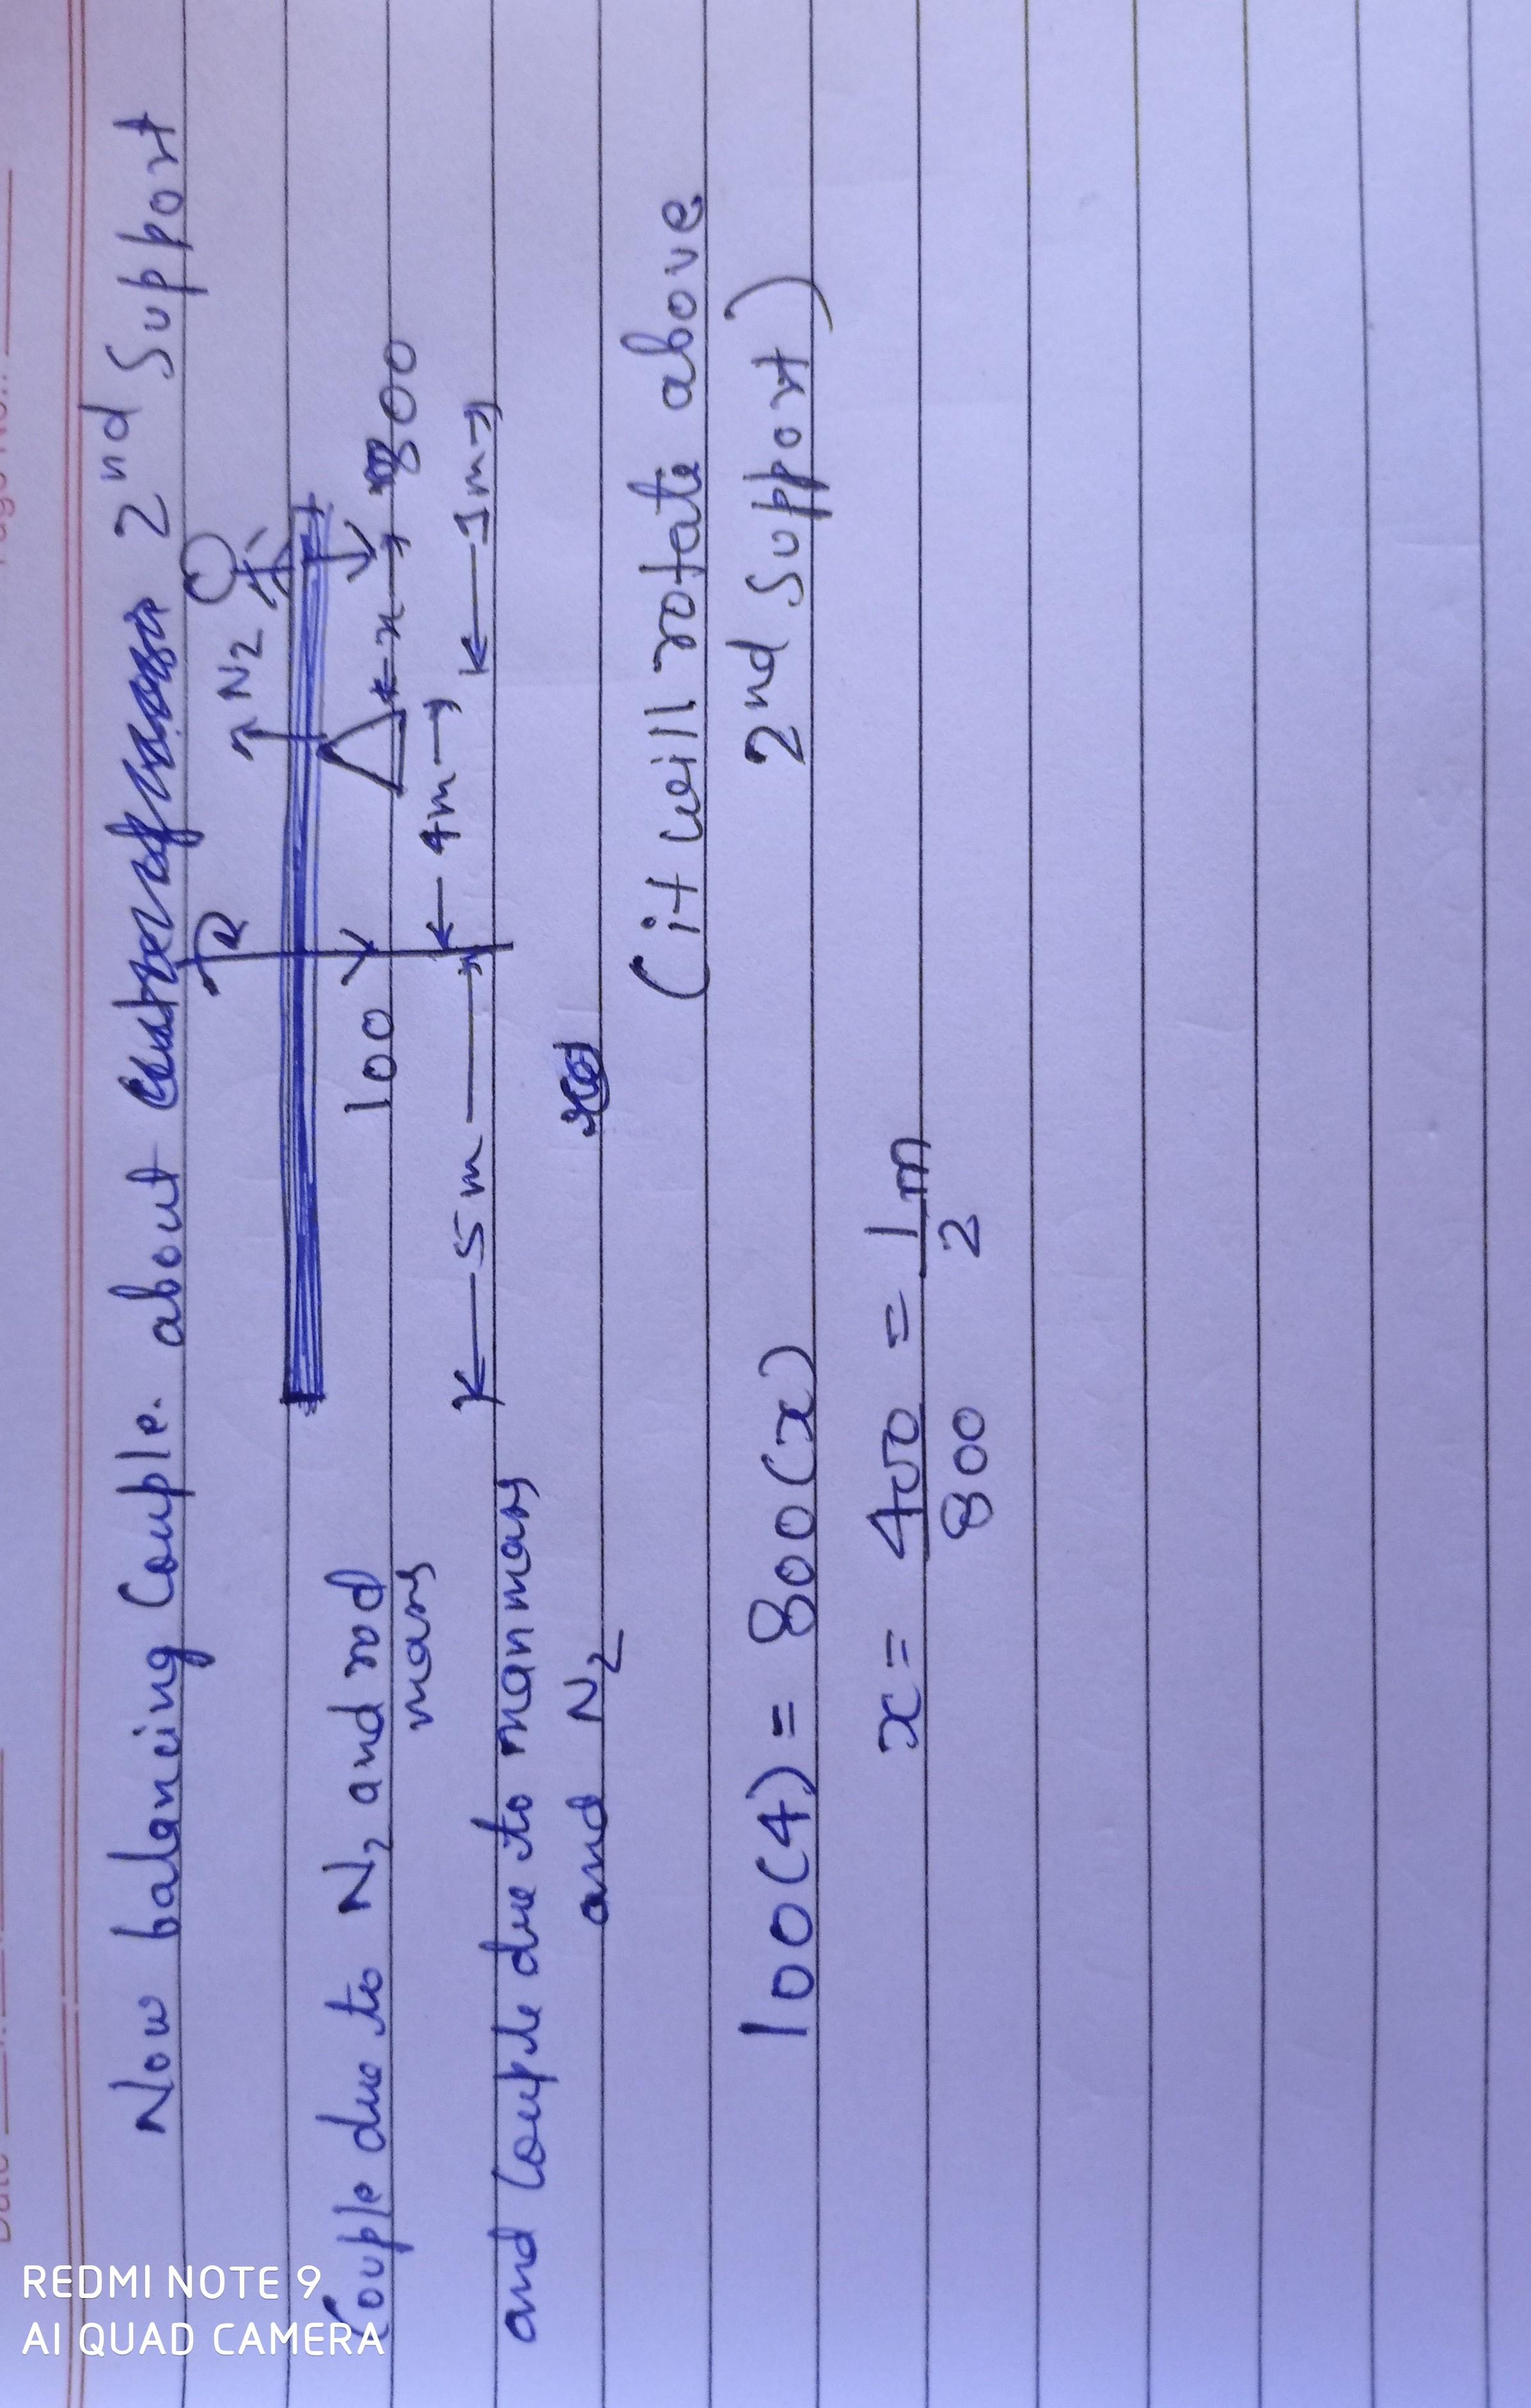 Now balancing Couple. about 2nd Support
R
N2
100
x
800
4m
5m
1m
Couple due to N2 and rod
mass
and Couple due to man mass
and N2
(it will rotate above
2nd Support)
100(4) = 800(x)
x = 400/800 = 1/2 m
REDMI NOTE 9
AI QUAD CAMERA